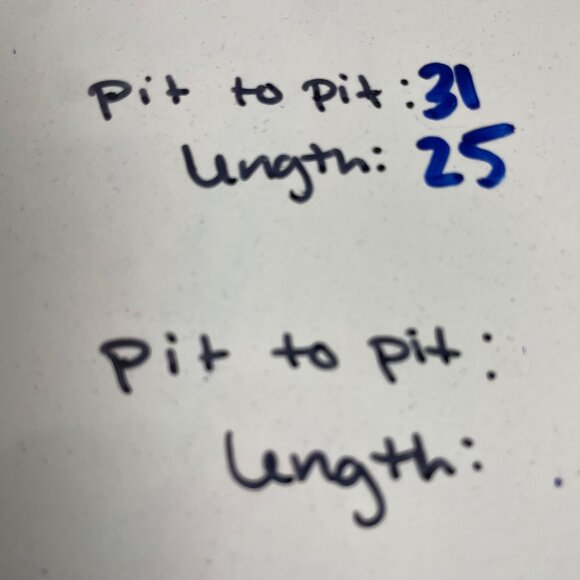 pit to pit: 31
length: 25
pit to pit:
length: